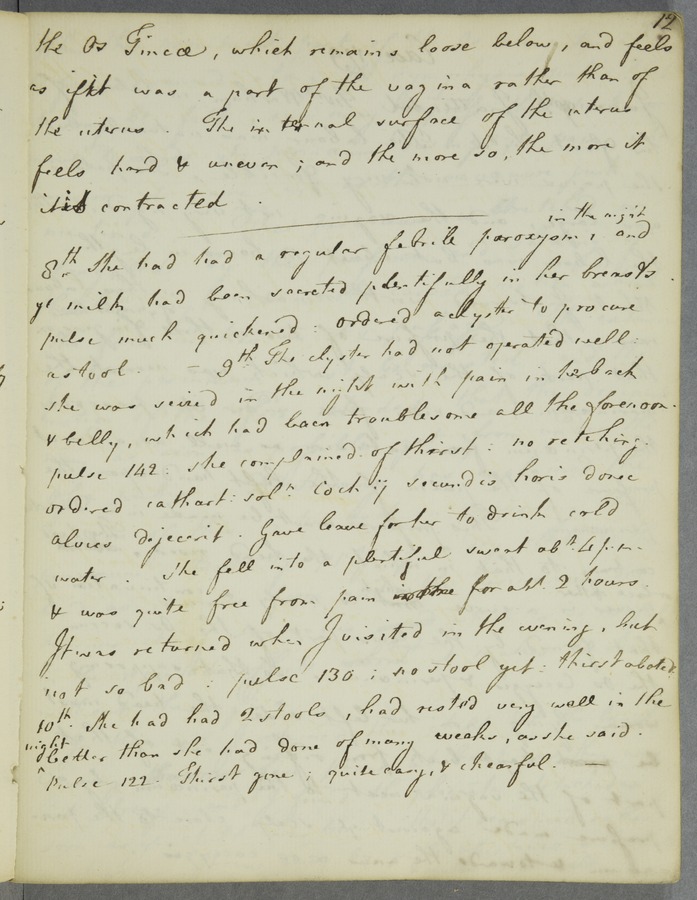 12
the Os Tincæ, which remains loose below, and feels
as if it was a part of the vagina rather than of
the uterus. The internal surface of the uterus
feels hard & uneven; and the more so, the more it
is contracted.
in the night
8th She had had a regular febrile paroxysm, and
ye milk had been secreted plentifully in her breasts.
pulse much quickened: ordered a clyster to procure
a stool. — 9th The clyster had not operated well:
she was seized in the night with pain in her back
& belly, which had been troublesome all the forenoon.
pulse 142: she complained of thirst: no retching.
ordered cathart: soln. Coch ij secundis horis donec
alvus dejecerit. Gave leave for her to drink cold
water. She fell into a plentiful sweat abt. 4 p.m.
& was quite free from pain for abt. 2 hours.
It was returned when I visited in the evening, but
not so bad: pulse 130; no stool yet: thirst abated.
10th. She had had 2 stools, had rested very well in the
night
better than she had done of many weeks, as she said.
Pulse 122. Thirst gone; quite easy, & chearful. —